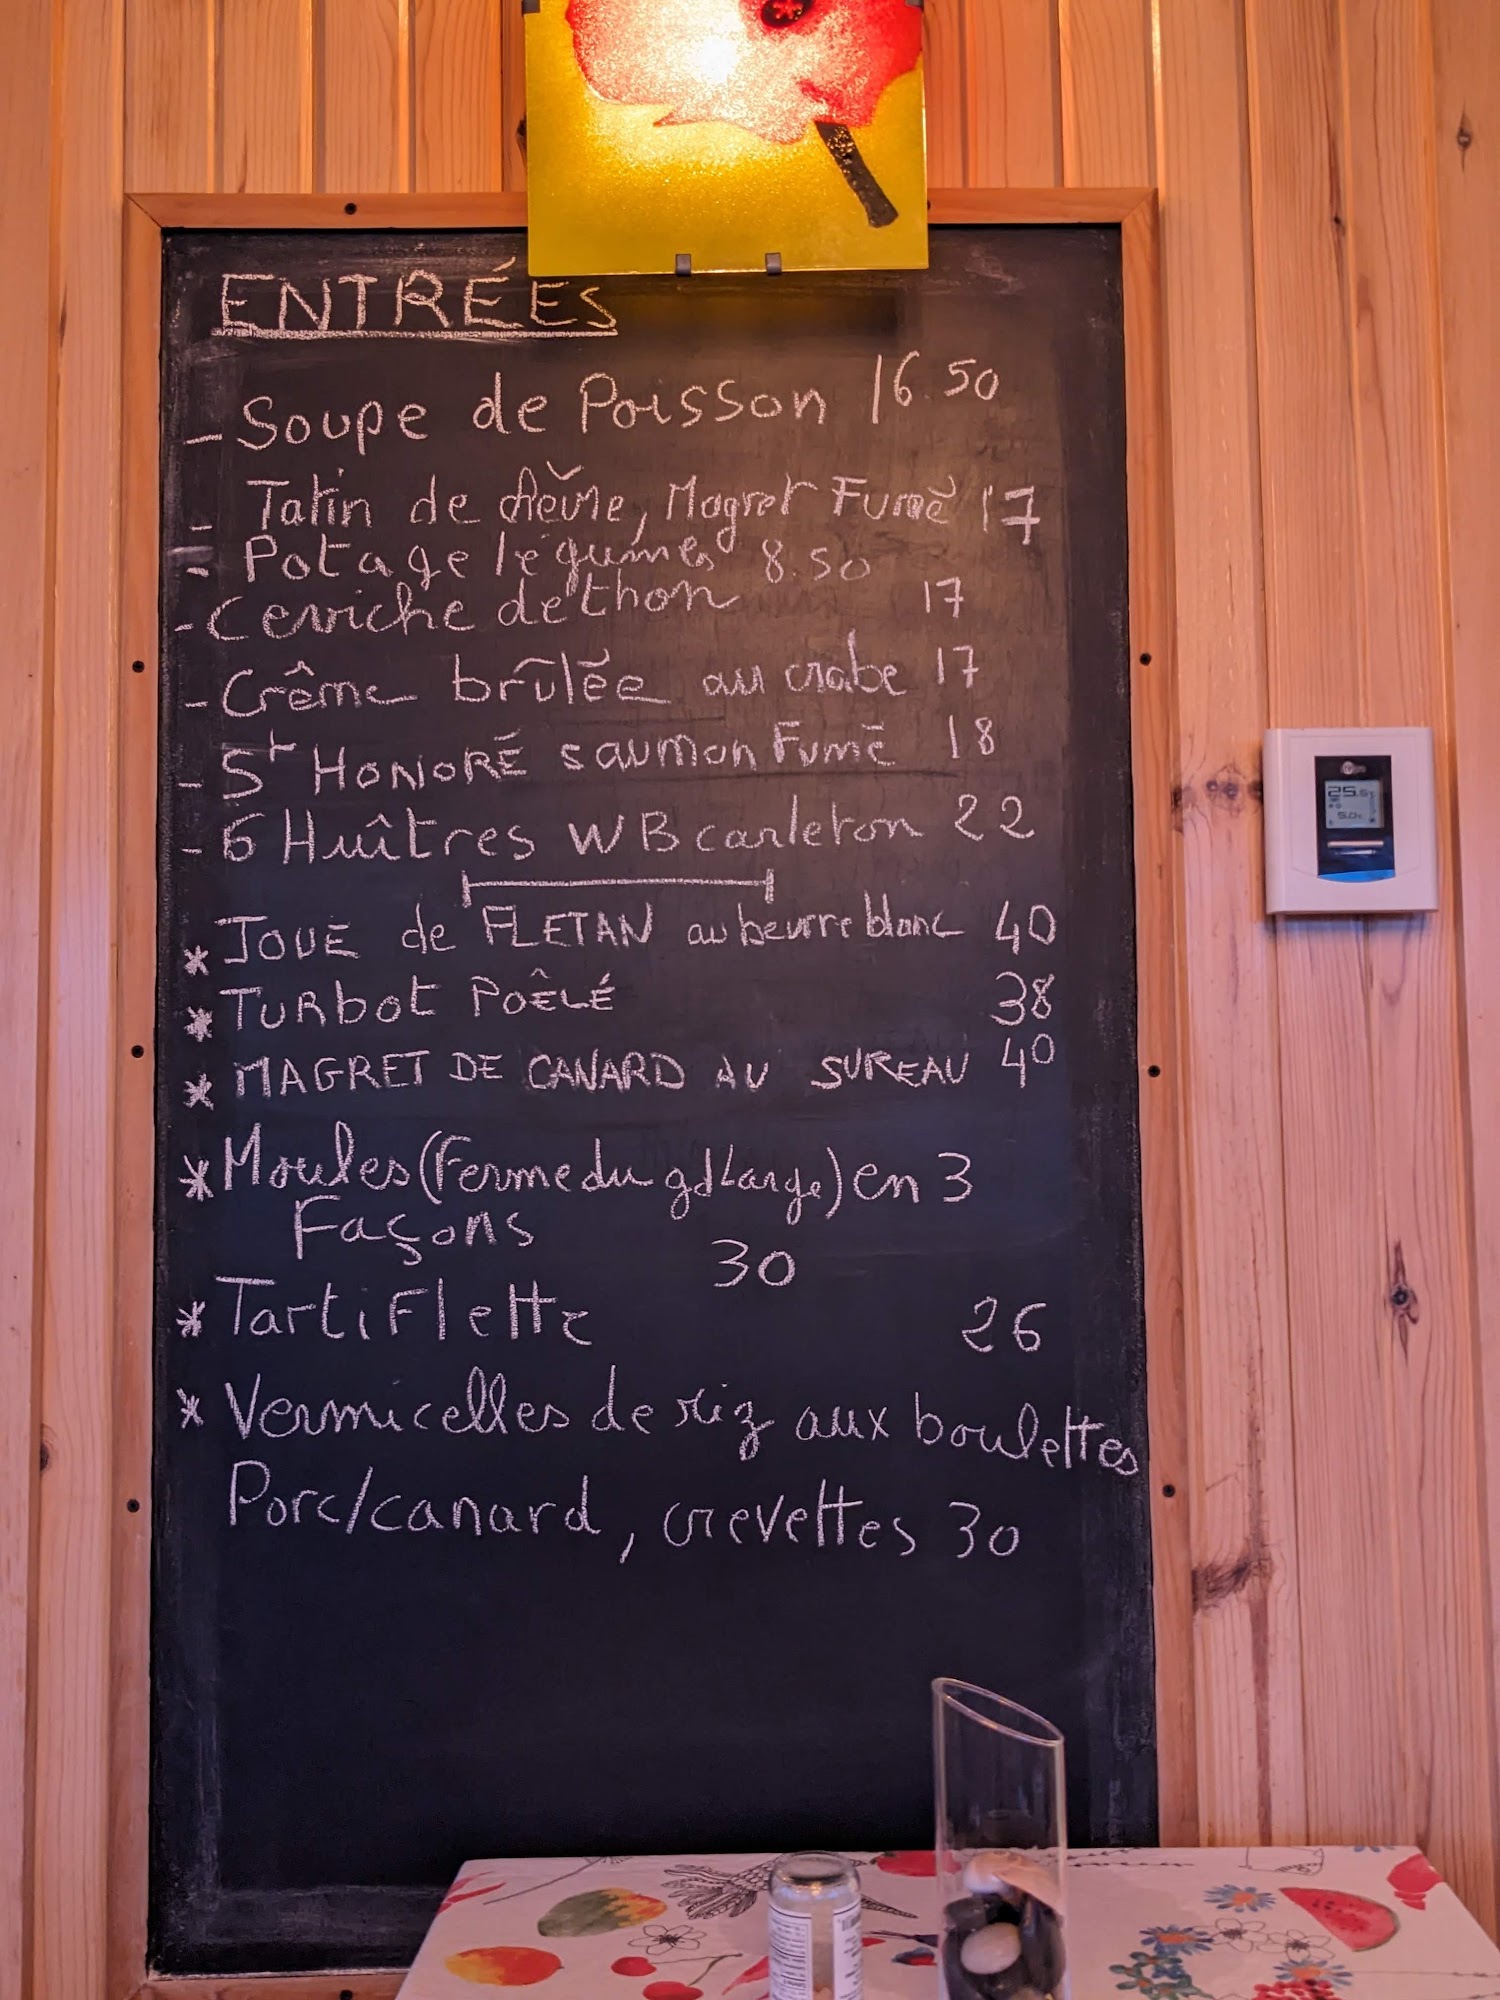 ENTRÉES
- Soupe de Poisson 16.50
- Tatin de chèvre, Magret Fumé 17
- Potage légumes 8.50
- Ceviche de thon 17
- Crême brûlée au crabe 17
- St HONORÉ saumon Fumé 18
- 6 Huîtres W B carleton 22
* JOUE de FLETAN au beurre blanc 40
* TURBOT POÊLÉ 38
* MAGRET DE CANARD AU SUREAU 40
* Moules (Ferme du gd Large) en 3
Façons 30
* Tartiflette 26
* Vermicelles de riz aux boulettes
Porc/canard, crevettes 30
25.5
5.0